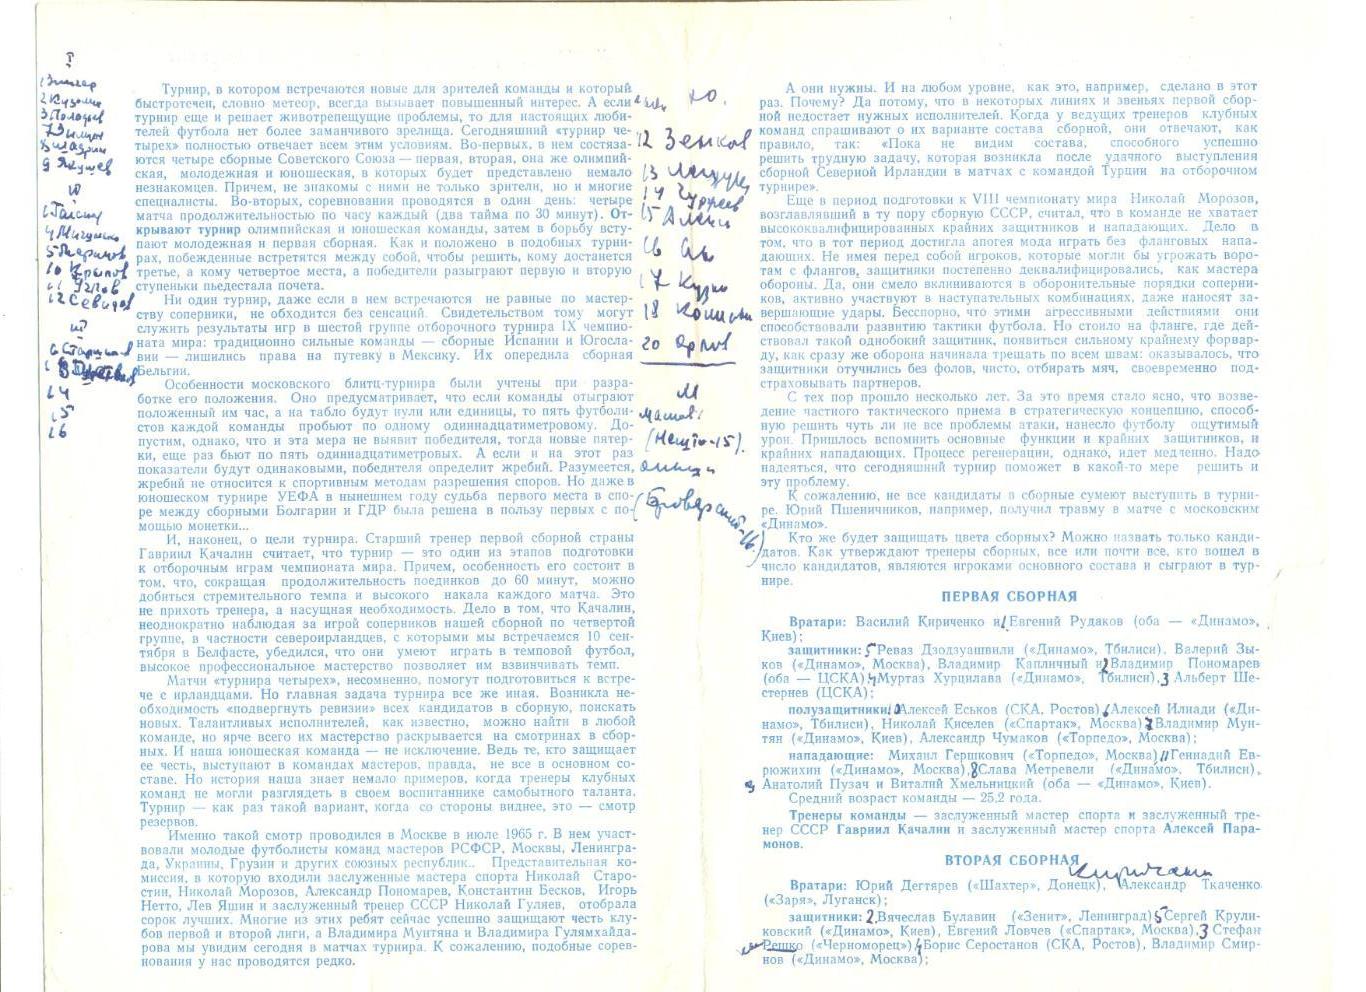 I
Турнир, в котором встречаются новые для зрителей команды и который
быстротечен, словно метеор, всегда вызывает повышенный интерес. А если
турнир еще и решает животрепещущие проблемы, то для настоящих люби-
телей футбола нет более заманчивого зрелища. Сегодняшний «турнир че-
тырех» полностью отвечает всем этим условиям. Во-первых, в нем состяза-
ются четыре сборные Советского Союза — первая, вторая, она же олимпий-
ская, молодежная и юношеская, в которых будет представлено немало
незнакомцев. Причем, не знакомы с ними не только зрители, но и многие
специалисты. Во-вторых, соревнования проводятся в один день: четыре
матча продолжительностью по часу каждый (два тайма по 30 минут). От-
крывают турнир олимпийская и юношеская команды, затем в борьбу всту-
пают молодежная и первая сборная. Как и положено в подобных турни-
рах, побежденные встретятся между собой, чтобы решить, кому достанется
третье, а кому четвертое места, а победители разыграют первую и вторую
ступеньки пьедестала почета.
Ни один турнир, даже если в нем встречаются не равные по мастер-
ству соперники, не обходится без сенсаций. Свидетельством тому могут
служить результаты игр в шестой группе отборочного турнира IX чемпио-
ната мира: традиционно сильные команды — сборные Испании и Югосла-
вии — лишились права на путевку в Мексику. Их опередила сборная
Бельгии.
Особенности московского блитц-турнира были учтены при разра-
ботке его положения. Оно предусматривает, что если команды отыграют
положенный им час, а на табло будут нули или единицы, то пять футболи-
стов каждой команды пробьют по одному одиннадцатиметровому. До-
пустим, однако, что и эта мера не выявит победителя, тогда новые пятер-
ки, еще раз бьют по пять одиннадцатиметровых. А если и на этот раз
показатели будут одинаковыми, победителя определит жребий. Разумеется,
жребий не относится к спортивным методам разрешения споров. Но даже в
юношеском турнире УЕФА в нынешнем году судьба первого места в спо-
ре между сборными Болгарии и ГДР была решена в пользу первых с по-
мощью монетки...
И, наконец, о цели турнира. Старший тренер первой сборной страны
Гавриил Качалин считает, что турнир — это один из этапов подготовки
к отборочным играм чемпионата мира. Причем, особенность его состоит в
том, что, сокращая продолжительность поединков до 60 минут, можно
добиться стремительного темпа и высокого накала каждого матча. Это
не прихоть тренера, а насущная необходимость. Дело в том, что Качалин,
неоднократно наблюдая за игрой соперников нашей сборной по четвертой
группе, в частности североирландцев, с которыми мы встречаемся 10 сен-
тября в Белфасте, убедился, что они умеют играть в темповой футбол,
высокое профессиональное мастерство позволяет им взвинчивать темп.
Матчи «турнира четырех», несомненно, помогут подготовиться к встре-
че с ирландцами. Но главная задача турнира все же иная. Возникла не-
обходимость «подвергнуть ревизии» всех кандидатов в сборную, поискать
новых. Талантливых исполнителей, как известно, можно найти в любой
команде, но ярче всего их мастерство раскрывается на смотринах в сбор-
ных. И наша юношеская команда — не исключение. Ведь те, кто защищает
ее честь, выступают в командах мастеров, правда, не все в основном со-
ставе. Но история наша знает немало примеров, когда тренеры клубных
команд не могли разглядеть в своем воспитаннике самобытного таланта.
Турнир — как раз такой вариант, когда со стороны виднее, это — смотр
резервов.
Именно такой смотр проводился в Москве в июле 1965 г. В нем участ-
вовали молодые футболисты команд мастеров РСФСР, Москвы, Ленингра-
да, Украины, Грузии и других союзных республик.. Представительная ко-
миссия, в которую входили заслуженные мастера спорта Николай Старо-
стин, Николай Морозов, Александр Пономарев, Константин Бесков, Игорь
Нетто, Лев Яшин и заслуженный тренер СССР Николай Гуляев, отобрала
сорок лучших. Многие из этих ребят сейчас успешно защищают честь клу-
бов первой и второй лиги, а Владимира Мунтяна и Владимира Гулямхайда-
рова мы увидим сегодня в матчах турнира. К сожалению, подобные сорев-
нования у нас проводятся редко.
Ю.
12 Зенков
20 Орлов
М
А они нужны. И на любом уровне, как это, например, сделано в этот
раз. Почему? Да потому, что в некоторых линиях и звеньях первой сбор-
ной недостает нужных исполнителей. Когда у ведущих тренеров клубных
команд спрашивают о их варианте состава сборной, они отвечают, как
правило, так: «Пока не видим состава, способного успешно
решить трудную задачу, которая возникла после удачного выступления
сборной Северной Ирландии в матчах с командой Турции на отборочном
турнире».
Еще в период подготовки к VIII чемпионату мира Николай Морозов,
возглавлявший в ту пору сборную СССР, считал, что в команде не хватает
высококвалифицированных крайних защитников и нападающих. Дело в
том, что в тот период достигла апогея мода играть без фланговых напа-
дающих. Не имея перед собой игроков, которые могли бы угрожать воро-
там с флангов, защитники постепенно деквалифицировались, как мастера
обороны. Да, они смело вклиниваются в оборонительные порядки соперни-
ков, активно участвуют в наступательных комбинациях, даже наносят за-
вершающие удары. Бесспорно, что этими агрессивными действиями они
способствовали развитию тактики футбола. Но стоило на фланге, где дей-
ствовал такой однобокий защитник, появиться сильному крайнему форвар-
ду, как сразу же оборона начинала трещать по всем швам: оказывалось, что
защитники отучились без фолов, чисто, отбирать мяч, своевременно под-
страховывать партнеров.
С тех пор прошло несколько лет. За это время стало ясно, что возве-
дение частного тактического приема в стратегическую концепцию, способ-
ную решить чуть ли не все проблемы атаки, нанесло футболу ощутимый
урон. Пришлось вспомнить основные функции и крайних защитников, и
крайних нападающих. Процесс регенерации, однако, идет медленно. Надо
надеяться, что сегодняшний турнир поможет в какой-то мере решить и
эту проблему.
К сожалению, не все кандидаты в сборные сумеют выступить в турни-
ре. Юрий Пшеничников, например, получил травму в матче с московским
«Динамо».
Кто же будет защищать цвета сборных? Можно назвать только канди-
датов. Как утверждают тренеры сборных, все или почти все, кто вошел в
число кандидатов, являются игроками основного состава и сыграют в тур-
нире.
ПЕРВАЯ СБОРНАЯ
Вратари: Василий Кириченко и 1 Евгений Рудаков (оба — «Динамо»,
Киев);
защитники: 5 Реваз Дзодзуашвили («Динамо», Тбилиси), Валерий Зы-
ков («Динамо», Москва), Владимир Капличный и 2 Владимир Пономарев
(оба — ЦСКА) 4 Муртаз Хурцилава («Динамо», Тбилиси), 3 Альберт Ше-
стернев (ЦСКА);
полузащитники: 10 Алексей Еськов (СКА, Ростов) 6 Алексей Илиади («Ди-
намо», Тбилиси), Николай Киселев («Спартак», Москва) 7 Владимир Мун-
тян («Динамо», Киев), Александр Чумаков («Торпедо», Москва);
нападающие: Михаил Гершкович («Торпедо», Москва) 11 Геннадий Ев-
рюжихин («Динамо», Москва), 8 Слава Метревели («Динамо», Тбилиси),
9 Анатолий Пузач и Виталий Хмельницкий (оба — «Динамо», Киев).
Средний возраст команды — 25,2 года.
Тренеры команды — заслуженный мастер спорта и заслуженный тре-
нер СССР Гавриил Качалин и заслуженный мастер спорта Алексей Пара-
монов.
ВТОРАЯ СБОРНАЯ
Вратари: Юрий Дегтярев («Шахтер», Донецк), Александр Ткаченко
(«Заря», Луганск);
защитники: 2 Вячеслав Булавин («Зенит», Ленинград) 5 Сергей Крули-
ковский («Динамо», Киев), Евгений Ловчев («Спартак», Москва), 3 Стефан
Решко («Черноморец») 4 Борис Серостанов (СКА, Ростов), Владимир Смир-
нов («Динамо», Москва);